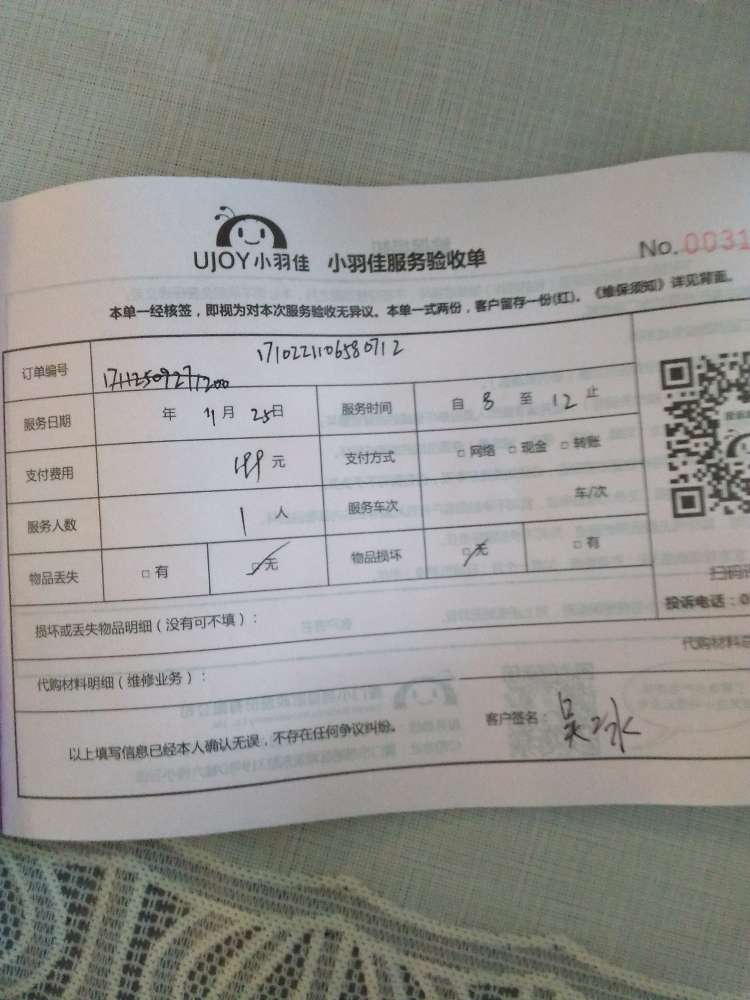 UJOY小羽佳 小羽佳服务验收单
No.0031
本单一经核签，即视为对本次服务验收无异议。本单一式两份，客户留存一份(红)。《维保须知》详见背面。
订单编号 1710221106580712
服务日期 年 11月 25日 服务时间 自 8 至 12 止
支付费用 199元 支付方式 □ 网络 □ 现金 □ 转账
服务人数 1 人 服务车次 车/次
物品丢失 □ 有 □ 无 物品损坏 □ 无 □ 有
损坏或丢失物品明细（没有可不填）：
投诉电话：0
代购材料明细（维修业务）：
以上填写信息已经本人确认无误，不存在任何争议纠纷。
客户签名：吴